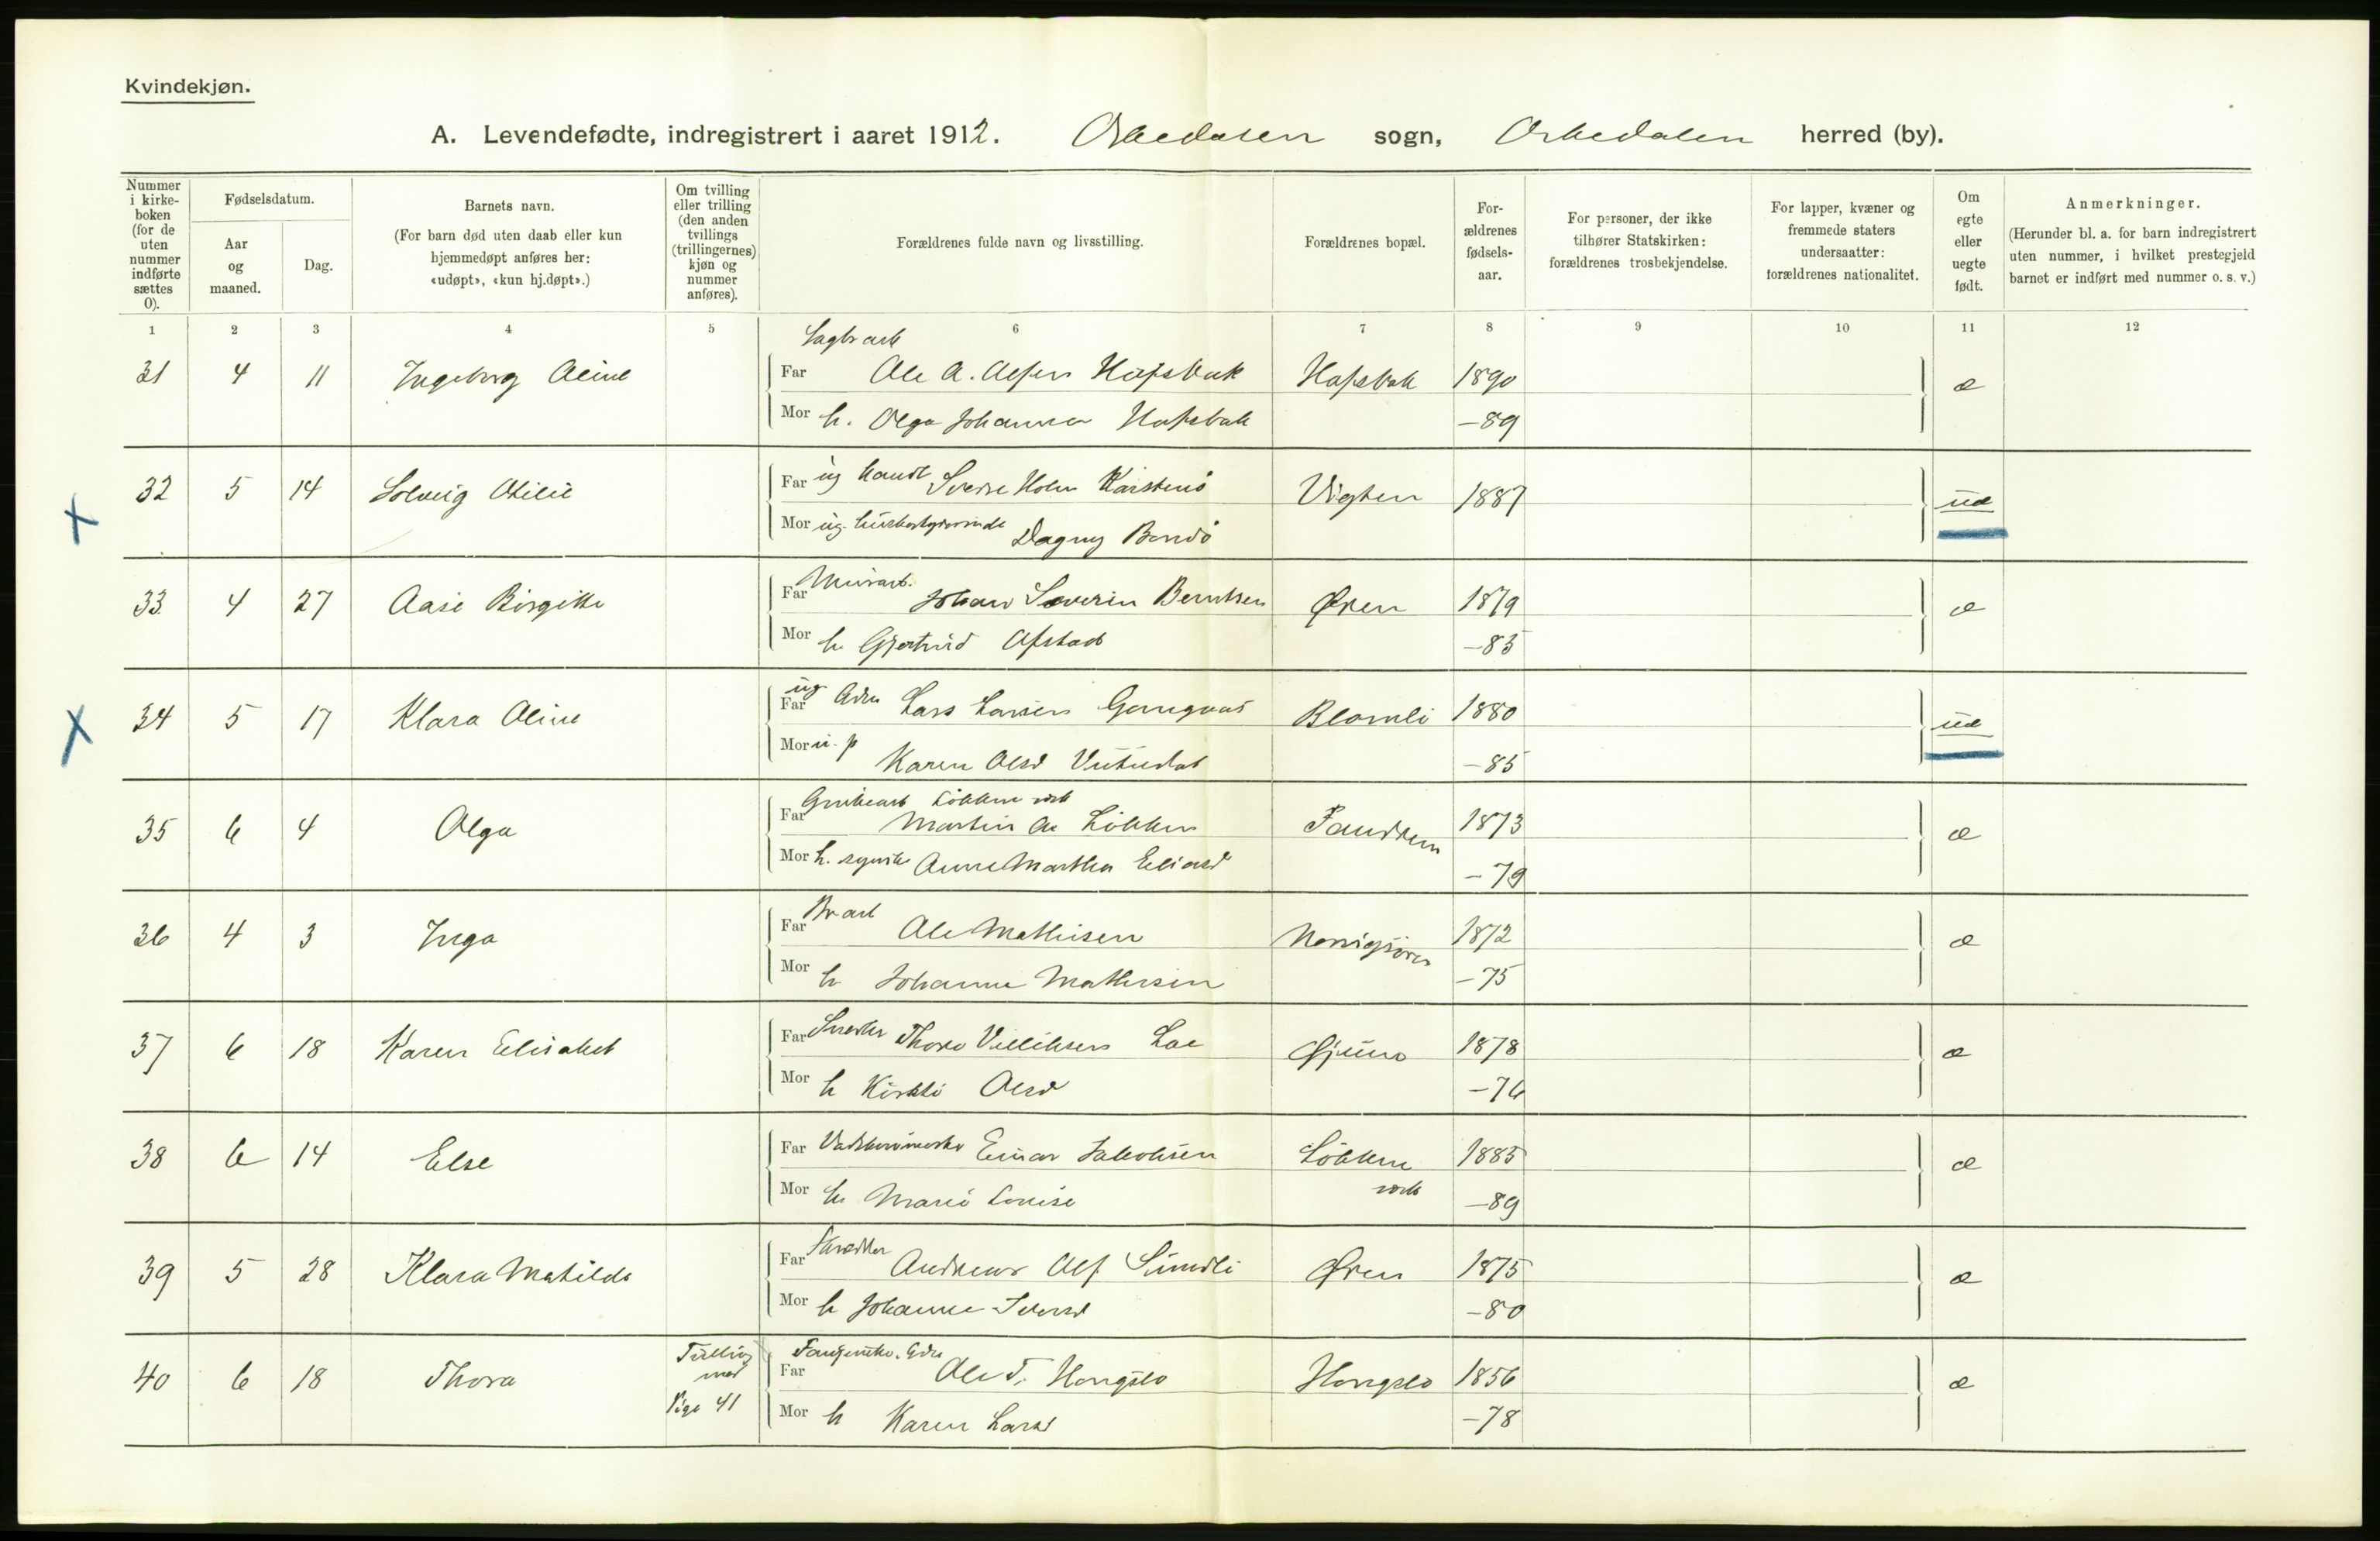 Kvindekjøn.
A. Levendefødte, indregistrert i aaret 1912. Orkedalen sogn, Orkedalen herred (by).
Nummer i kirke-boken (for de uten nummer indførte sættes 0).
Fødselsdatum.
Aar og maaned.
Dag.
Barnets navn.
(For barn død uten daab eller kun hjemmedøpt anføres her: «udøpt», «kun hj.døpt».)
Om tvilling eller trilling (den anden tvillings (trillingernes) kjøn og nummer anføres).
Forældrenes fulde navn og livsstilling.
Forældrenes bopæl.
For-ældrenes fødsels-aar.
For personer, der ikke tilhører Statskirken: forældrenes trosbekjendelse.
For lapper, kvæner og fremmede staters undersaatter: forældrenes nationalitet.
Om egte eller uegte født.
Anmerkninger.
(Herunder bl. a. for barn indregistrert uten nummer, i hvilket prestegjeld barnet er indført med nummer o. s. v.)
1 2 3 4 5 6 7 8 9 10 11 12
Sagbr arb
31 4 11 Ingeborg Oline Far Ole A. Olsen Hofsbak Hofsbak 1890 æ
Mor h. Olga Johanna Hofsbak -89
32 5 14 Solveig Otilie Far ug handl Sverre Holm Karstens Vigten 1887 uæ
Mor ug. husbestyrerinde Dagny Bondø
33 4 27 Aase Birgitte Far Murarb. Johan Severin Berntsen Øren 1879 æ
Mor h Gjertrud Ofstad -85
34 5 17 Klara Oline Far ug Lars Larsen Blomli 1880 uæ
Mor u. p Karen Olsd -85
Grubearb Løkken verk
35 6 4 Olga Far Martin Løkken Fandrem 1873 æ
Mor h. Anne Martha Eliasd -79
36 4 3 Inga Far Br arb Ole Mathisen 1872 æ
Mor h Johanne Mathisen -75
37 6 18 Karen Elisabet Far Snedker Thore Villiksen Loe Gjøino 1878 æ
Mor h Kirsti Olsd -76
38 6 14 Else Far Einar Jakobsen Løkken verk 1885 æ
Mor h Marie Louise -89
39 5 28 Klara Matilde Far Skrædder Andreas Sundli Øren 1875 æ
Mor h Johanne Iversd -80
40 6 18 Thora Tvilling med Pige 41 Far Ole T. Hongslo Hongslo 1856 æ
Mor h Karen Larsd -78